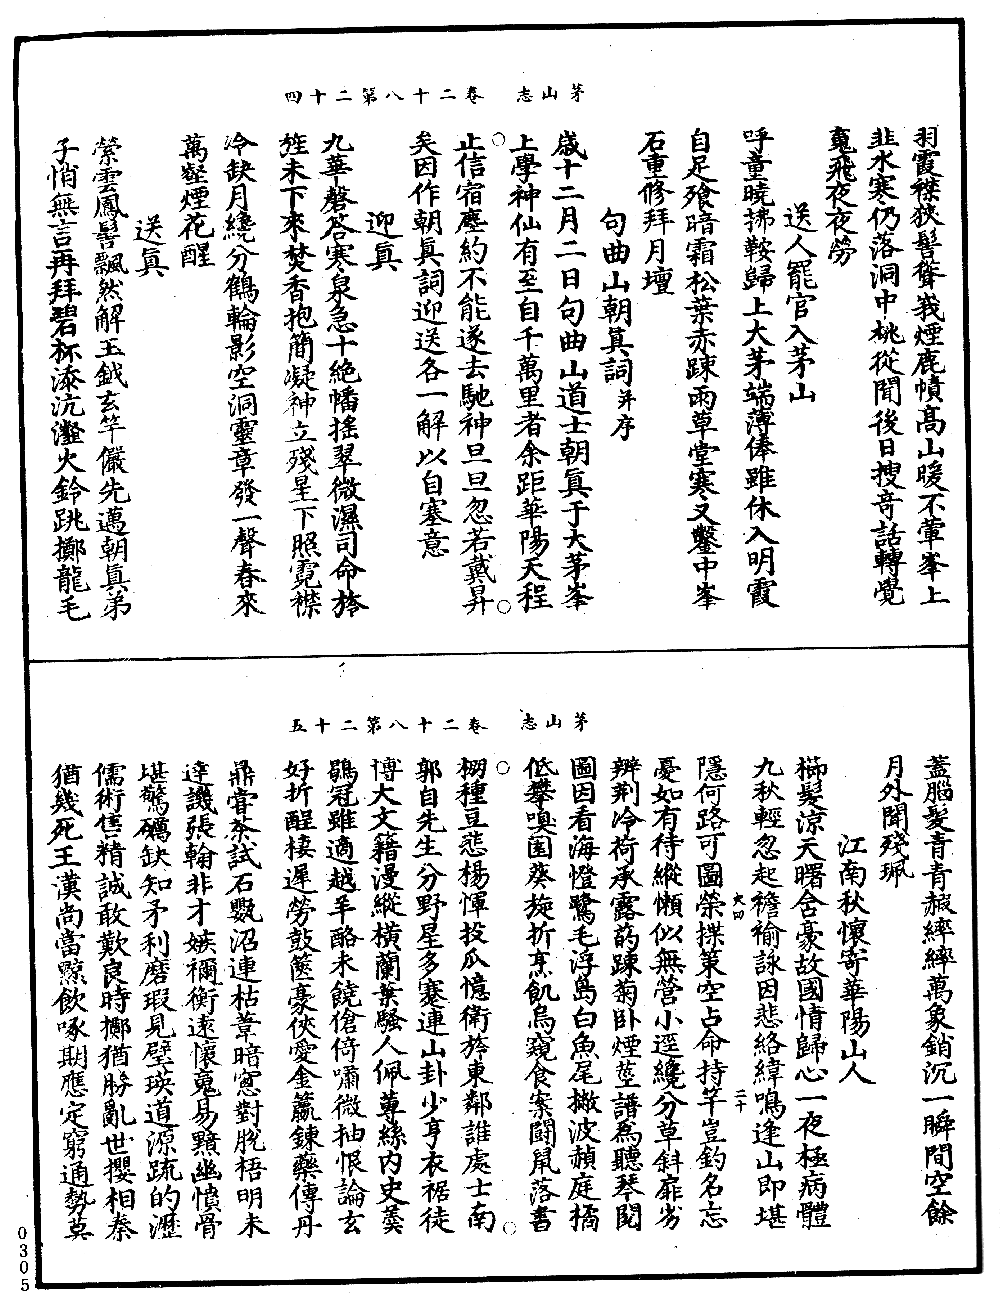 茅山志　卷二十八第二十四
羽霞襟狹髻聳峩煙鹿幘高山暖不葷峯上
韭水寒仍落洞中桃從聞後日搜奇話轉覺
䰟飛夜夜勞
送人罷官入茅山
呼童曉拂鞍歸上大茅端薄俸雖休入明霞
自足飡暗霜松葉赤踈雨草堂寒又鑿中峯
石重修拜月壇
句曲山朝眞詞并序
歲十二月二日句曲山道士朝眞于大茅峯
上學神仙有至自千萬里者余距華陽天程
止信宿塵約不能遂去馳神旦旦忽若戴昇
矣因作朝眞詞迎送各一解以自塞意
迎眞
九華磬答寒泉急十絶幡搖翠微濕司命旍
旌未下來焚香抱簡凝神立殘星下照霓襟
冷缺月纔分鶴輪影空洞靈章發一聲春來
萬壑煙花醒
送眞
縈雲鳳髻飄然解玉鉞玄竿儼先邁朝眞弟
子悄無言再拜碧杯添沆瀣火鈴跳擲龍毛
茅山志　卷二十八第二十五
蓋腦髮青青𥿭綷縩萬象銷沉一瞬間空餘
月外聞殘珮
江南秋懷寄華陽山人
櫛髮涼天曙含毫故國情歸心一夜極病體
九秋輕忽起襜褕詠因悲絡緯鳴逢山即堪
隱何路可圖榮揲策空占命持竿豈釣名忘
憂如有待縱懶似無營小逕纔分草斜扉劣
辨荆冷荷承露菂踈菊卧煙莖譜為聽琴閱
圖因看海憕鷺毛浮島白魚尾撇波赬庭橘
低攀嗅園葵旋折烹飢烏窺食案鬪鼠落書
棚種豆悲楊惲投瓜憶衛旍東鄰誰處士南
郭自先生分野星多蹇連山卦少亨衣裾徒
博大文籍漫縱橫蘭葉騷人佩蓴絲内史羹
鶡冠雖適越羊酪未饒傖倚嘯微抽恨論玄
好折酲棲遲勞鼓篋豪俠愛金籯鍊藥傳丹
鼎嘗茶試石甖沼連枯葦暗窻對脫梧明未
達譏張翰非才嫉禰衡遠懷䰟易黯幽憤骨
堪驚礪缺知矛利磨瑕見璧瑛道源疏的瀝
儒術雋精誠敢歎良時擲猶勝亂世攖相秦
猶幾死王漢尚當黥飲啄期應定窮通勢莫
大四
二十
0305